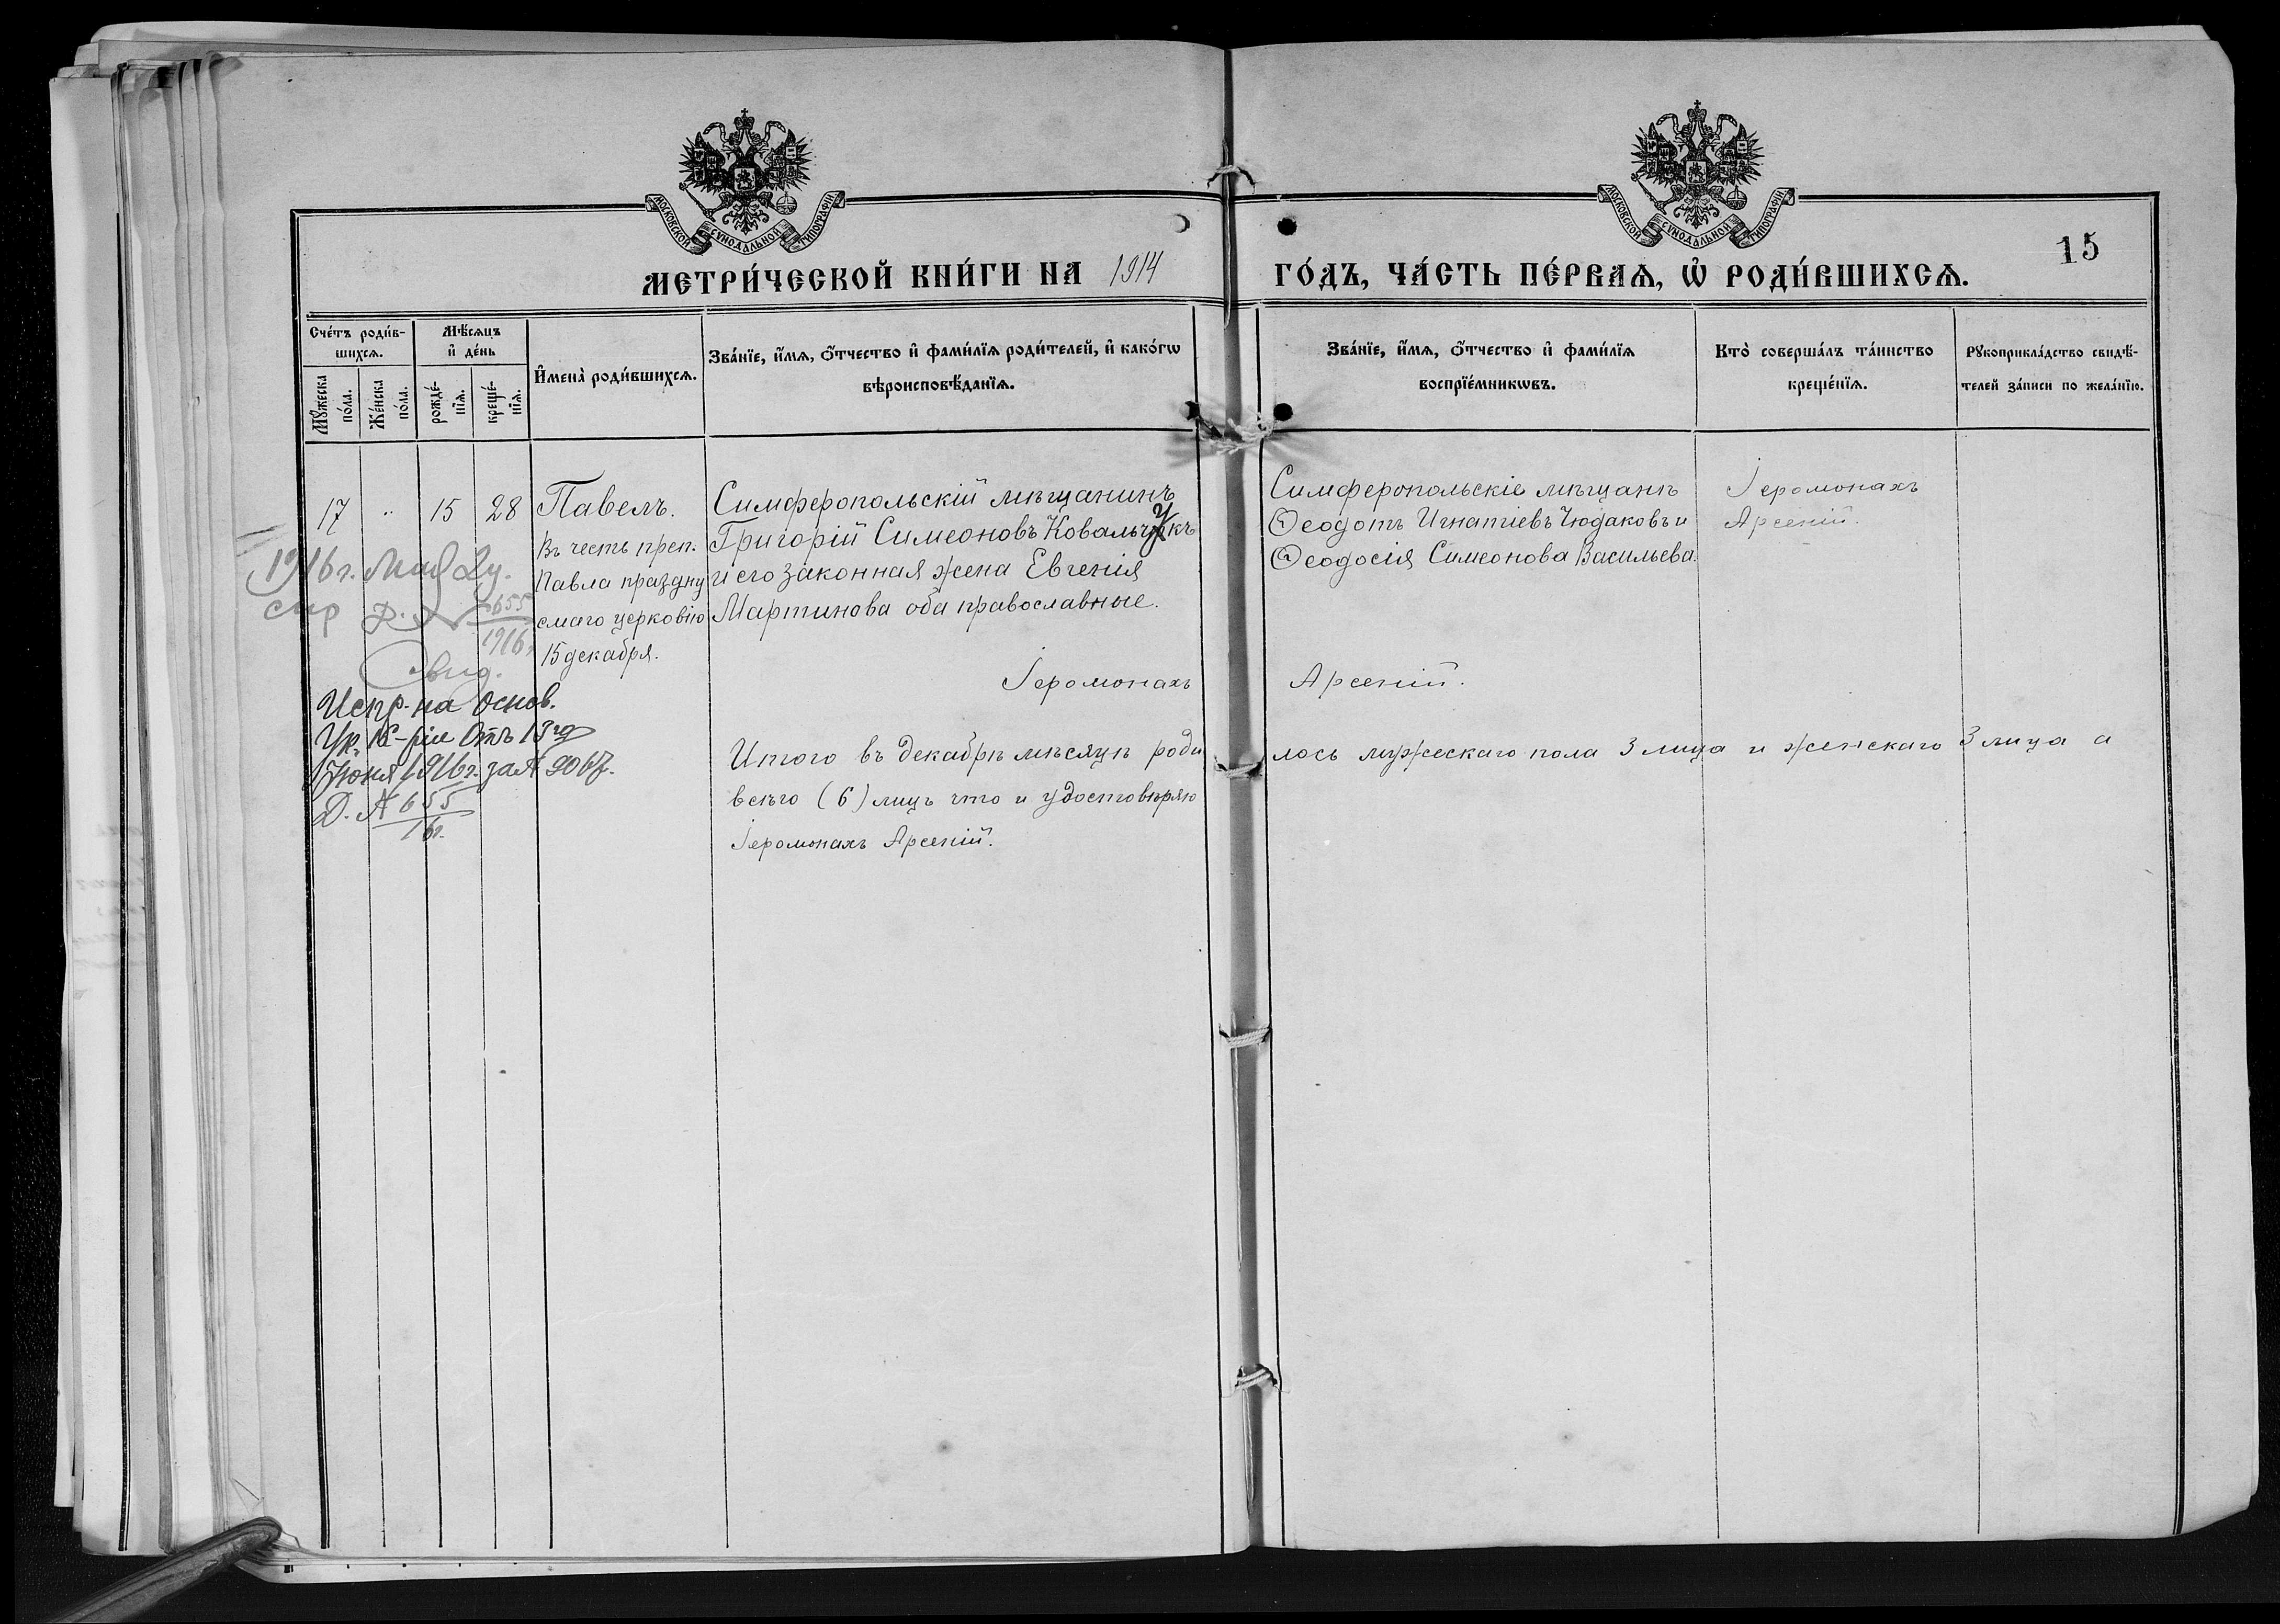 МОСКОВСКОЙ СѴНОДАЛЬНОЙ ТИПОГРАФІИ.
МОСКОВСКОЙ СѴНОДАЛЬНОЙ ТИПОГРАФІИ.
15
МЕТРИ́ЧЕСКОЙ КНИ́ГИ НА 1914 ГО́ДЪ, ЧА́СТЬ ПЕ́РВАѦ, Ѡ҆ РОДИ́ВШИХСѦ.
Сче́тъ роди́в-
шихсѧ.
Мꙋ́жеска
по́ла.
Же́нска
по́ла.
Мѣ́сѧцъ
и҆ де́нь
рожде́-
нїѧ.
креще́-
нїѧ.
И҆мена̀ роди́вшихсѧ.
Зва́нїе, и҆́мѧ, ѻ҆́тчество и҆ фами́лїѧ роди́телей, и҆ како́гѡ
вѣроисповѣ́данїѧ.
Зва́нїе, и҆́мѧ, ѻ҆́тчество и҆ фами́лїѧ
воспрїе́мникѡвъ.
Кто̀ соверша́лъ та́инство
креще́нїѧ.
Рꙋкоприкла́дство свидѣ́-
телей за́писи по жела́нїю.
17 " 15 28
Павелъ.
Въ честь преп.
Павла праздну
емаго церковію
15 декабря.
Симферопольскій мѣщанинъ
Григорій Симеоновъ Ковальчукъ
и его законная жена Евгенія
Мартинова оба православные.
Симферопольскіе мѣщане
Ѳеодотъ Игнатіевъ Чюдаковъ и
Ѳеодосія Симеонова Васильева.
Іеромонахъ
Арсеній.
1916 г.
655
1916 г.
Свид.
Іеромонахъ Арсеній.
Испр. на основ.
Ук. К-ріи Отъ 13го
Іюня 1916 г. за №
Д. № 655
16 г.
Итого въ декабрѣ мѣсяцѣ роди лось мужескаго пола 3 лица и женскаго 3 лица а
всѣго (6) лицъ что и удостовѣряю
Іеромонахъ Арсеній.